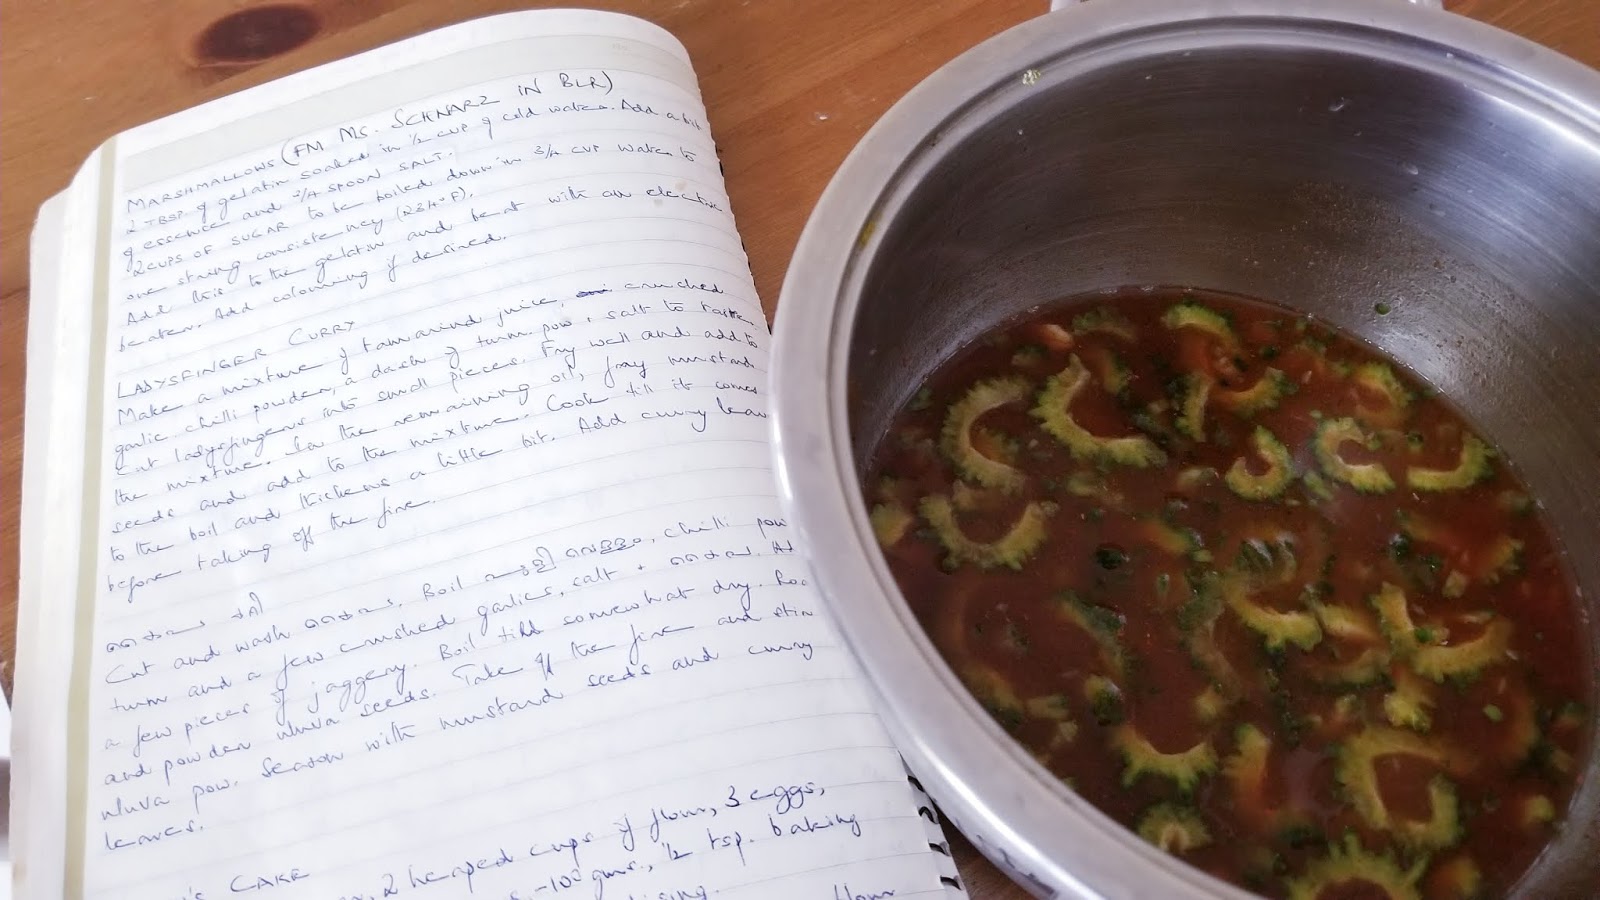 MARSHMALLOWS (FM MS. SCHWARZ IN BLR)
2 TBSP. of gelatin soaked in 1/2 cup of cold water. Add a bit
of essence and 3/4 SPOON SALT.
2 CUPS OF SUGAR to be boiled down in 3/4 cup water to
one string consistency (234°F).
Add this to the gelatin and beat with an electric
beater. Add colouring if desired.
LADYSFINGER CURRY
Make a mixture of tamarind juice, crushed
garlic, chilli powder, a dash of turm. pow, salt to taste.
Cut ladysfingers into small pieces. Fry well and add to
the mixture. In the remaining oil, fray mustard
seeds and add to the mixture. Cook till it comes
to the boil and thickens a little bit. Add curry leaves
before taking off the fire.
കറി
Cut and wash Boil പുളി വെള്ളം, chilli pow
turm and a few crushed garlics, salt +
a few pieces of jaggery. Boil till somewhat dry.
and powder uluva seeds. Take off the fire and stir
uluva pow. Season with mustard seeds and curry
leaves.
's CAKE
2 heaped cups of flour, 3 eggs,
100 gms., 1/2 tsp. baking
icing.
flour